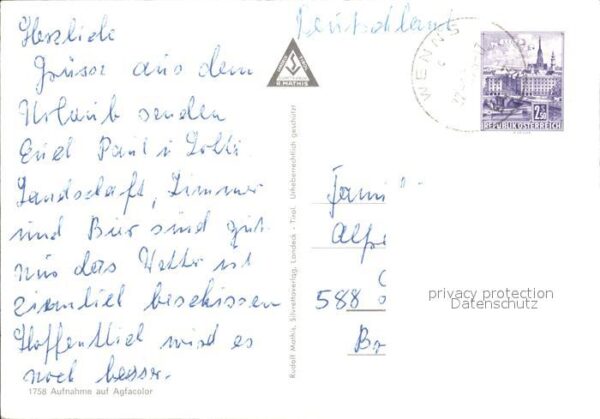 Deutschland
Herzliche
Grüsse aus dem
Urlaub senden
Euch Paul u Lotti
Landschaft, Zimmer
und Bier sind gut
nur das Wetter ist
ziemlich beschissen
Hoffentlich wird es
noch besser.
1758 Aufnahme auf Agfacolor
R. MATHIS
Rudolf Mathis, Silvrettaverlag, Landeck - Tirol. Urheberrechtlich geschützt
WENNS
2.50
REPUBLIK ÖSTERREICH
Fami
Alpe
588
privacy protection
Datenschutz